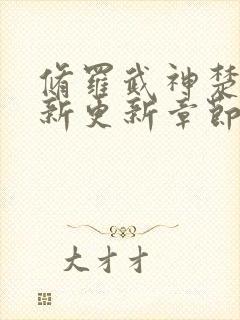 脩罗武神楚
新更新章節
大才才